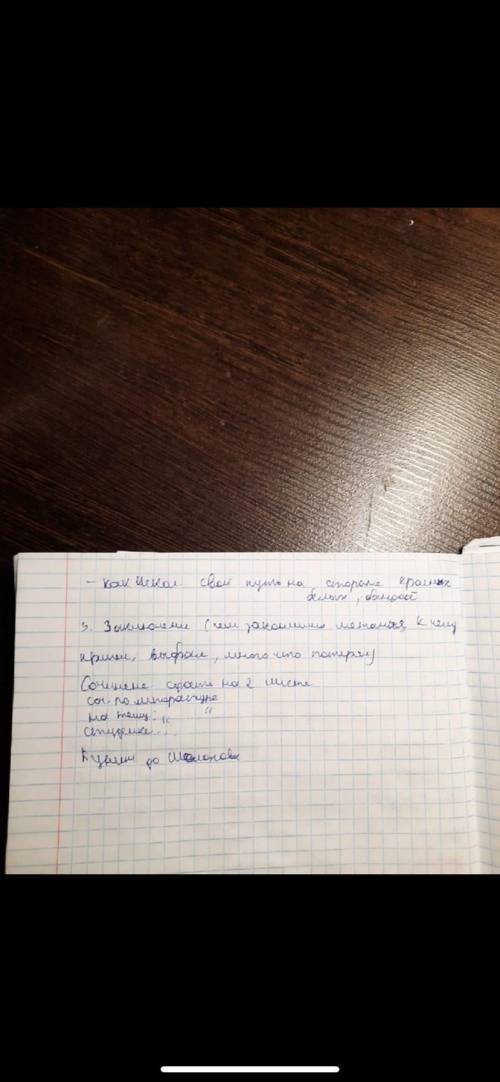 - как искал свой путь на стороне красных
белых, бандой
3. Заключение (чем закончил метания, к чему
пришел, выбрал, много что потерял)
Сочинение сдать на 2 листе
соч по литературе
на тему: " "
студента...
Кузьмин до